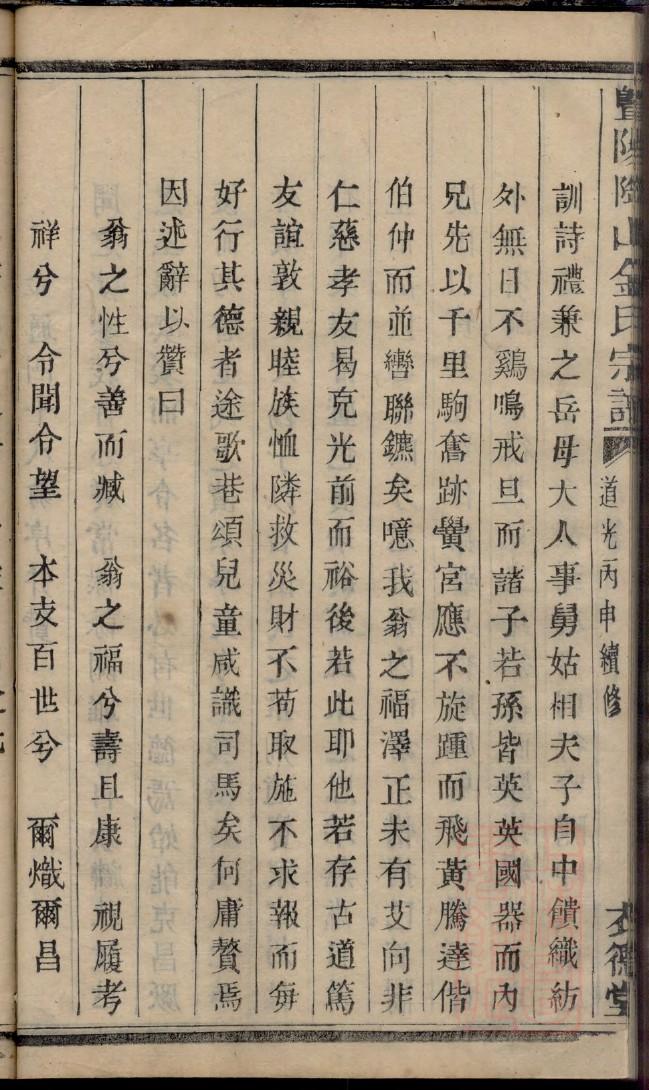 暨陽隂山金氏宗譜 道光丙申續修
訓詩禮兼之岳母大人事舅姑相夫子自中饋織紡
外無日不鷄鳴戒旦而諸子若孫皆英英國器而內
兄先以千里駒奮跡黌宮應不旋踵而飛黃騰達偕
伯仲而並轡聯鑣矣噫我翁之福澤正未有艾向非
仁慈孝友曷克光前而裕後若此耶他若存古道篤
友誼敦親睦族恤隣救災財不苟取施不求報而每
好行其德者途歌巷頌兒童咸識司馬矣何庸贅焉
因述辭以贊曰
翁之性兮善而臧 翁之福兮壽且康 視履考
祥兮 令聞令望 本支百世兮 爾熾爾昌
德堂